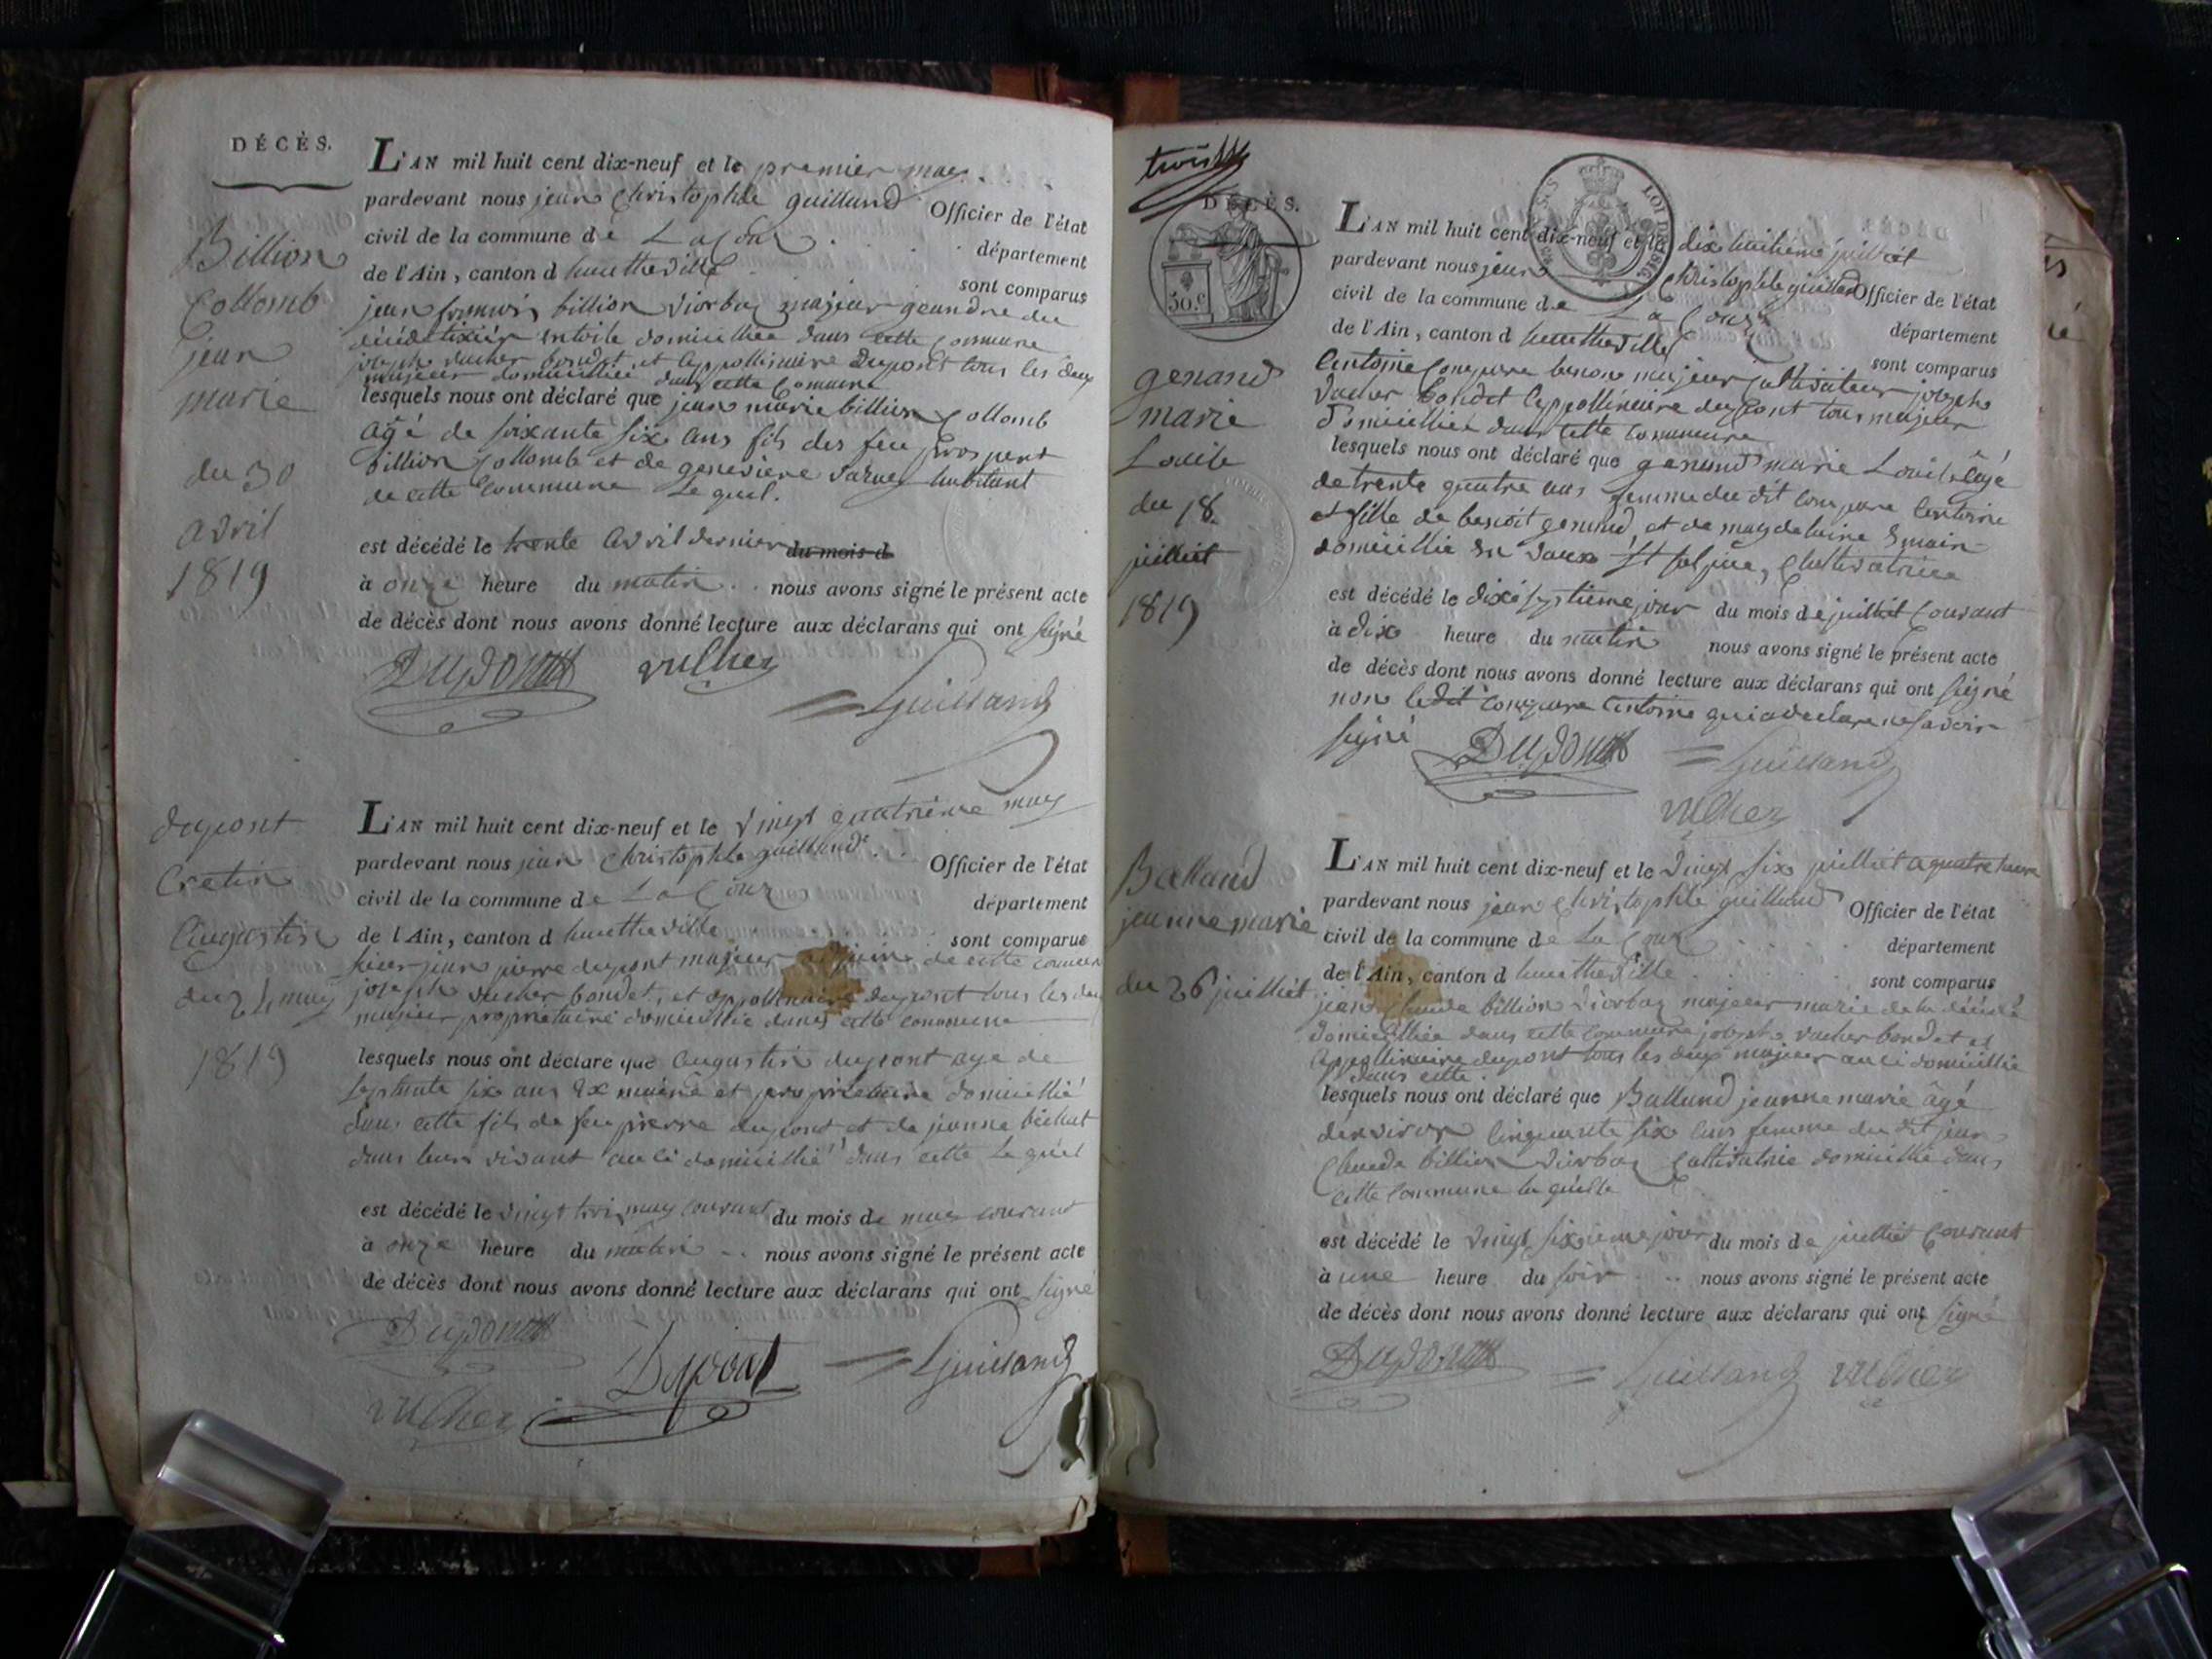 DÉCÈS.
Billion
Collomb
jean
marie
du 30
avril
1819
L'AN mil huit cent dix-neuf et le premier may
pardevant nous jean Christophle guilland Officier de l'état
civil de la commune de La Coux département
de l'Ain, canton d hautheville sont comparus
jean francois billion Diorbaz majeur geandre du
en toile domicillié dans cette commune
joseph vucher bondet et appollinaire dupont tous les deux
majeur domicillié dans cette commune
lesquels nous ont déclaré que jean marie billion Collomb
agé de soixante six ans fils des feu prospert
billion Collomb et de genevieve habitant
de cette commune Le quel.
est décédé le trente avril dernier du mois d
à onze heure du matin nous avons signé le présent acte
de décès dont nous avons donné lecture aux déclarans qui ont signé
Dupont vucher
Guilland
dupont
Cretin
augustin
du 24 may
1819
L'AN mil huit cent dix-neuf et le vingt quatrième may
pardevant nous jean Christophle guilland Officier de l'état
civil de la commune de La Coux département
de l'Ain, canton d hautheville sont comparus
sieur jean pierre dupont majeur de cette commune
joseph vucher bondet, et appollinaire dupont tous les deux
majeur propriétaire domicillié dans cette commune
lesquels nous ont déclaré que augustin dupont agé de
septante six ans Ex maire et propriétaire domicillié
dans cette fils de feu pierre dupont et de jeanne
dans leurs vivant auci domicillié dans cette Le quel
est décédé le vingt trois may courant du mois de may courant
à onze heure du matin nous avons signé le présent acte
de décès dont nous avons donné lecture aux déclarans qui ont signé
Dupont
Dupont Guilland
vucher
trois
DÉCÈS.
50.c
LOI DE 1816
genand
marie
Louise
du 18
juilliet
1819
L'AN mil huit cent dix-neuf et le dix huitième juilliet
pardevant nous jean Christophle guilland Officier de l'état
civil de la commune de La Coux département
de l'Ain, canton d hautheville sont comparus
antoine compere majeur cultivateur joseph
vucher bondet appollinaire dupont tous majeur
domicillié dans cette commune
lesquels nous ont déclaré que genand marie Louise âgé
de trente quatre ans femme du dit compere antoine
et fille de benoit genand et de magdelaine
domicillié en vaux St sulpice, Cultivatrice
est décédé le dixseptieme jour du mois de juilliet courant
à dix heure du matin nous avons signé le présent acte
de décès dont nous avons donné lecture aux déclarans qui ont signé
non ledit compere antoine qui a declare ne savoir
signé Dupont Guilland
vucher
Balland
jeanne marie
du 26 juilliet
L'AN mil huit cent dix-neuf et le vingt six juilliet a quatre heure
pardevant nous jean Christophle guilland Officier de l'état
civil de la commune de La Coux département
de l'Ain, canton d hautheville sont comparus
jean Claude billion Diorbaz majeur marie de la
domicillié dans cette commune joseph vucher bondet et
appollinaire dupont tous les deux majeur auci domicillié
dans cette
lesquels nous ont déclaré que Balland jeanne marie âgé
denviron cinquante six ans femme du dit jean
Claude billion Diorbaz cultivatrice domicillié dans
cette commune la quelle
est décédé le vingt sixieme jour du mois de juilliet courant
à une heure du soir nous avons signé le présent acte
de décès dont nous avons donné lecture aux déclarans qui ont signé
Dupont Guilland vucher